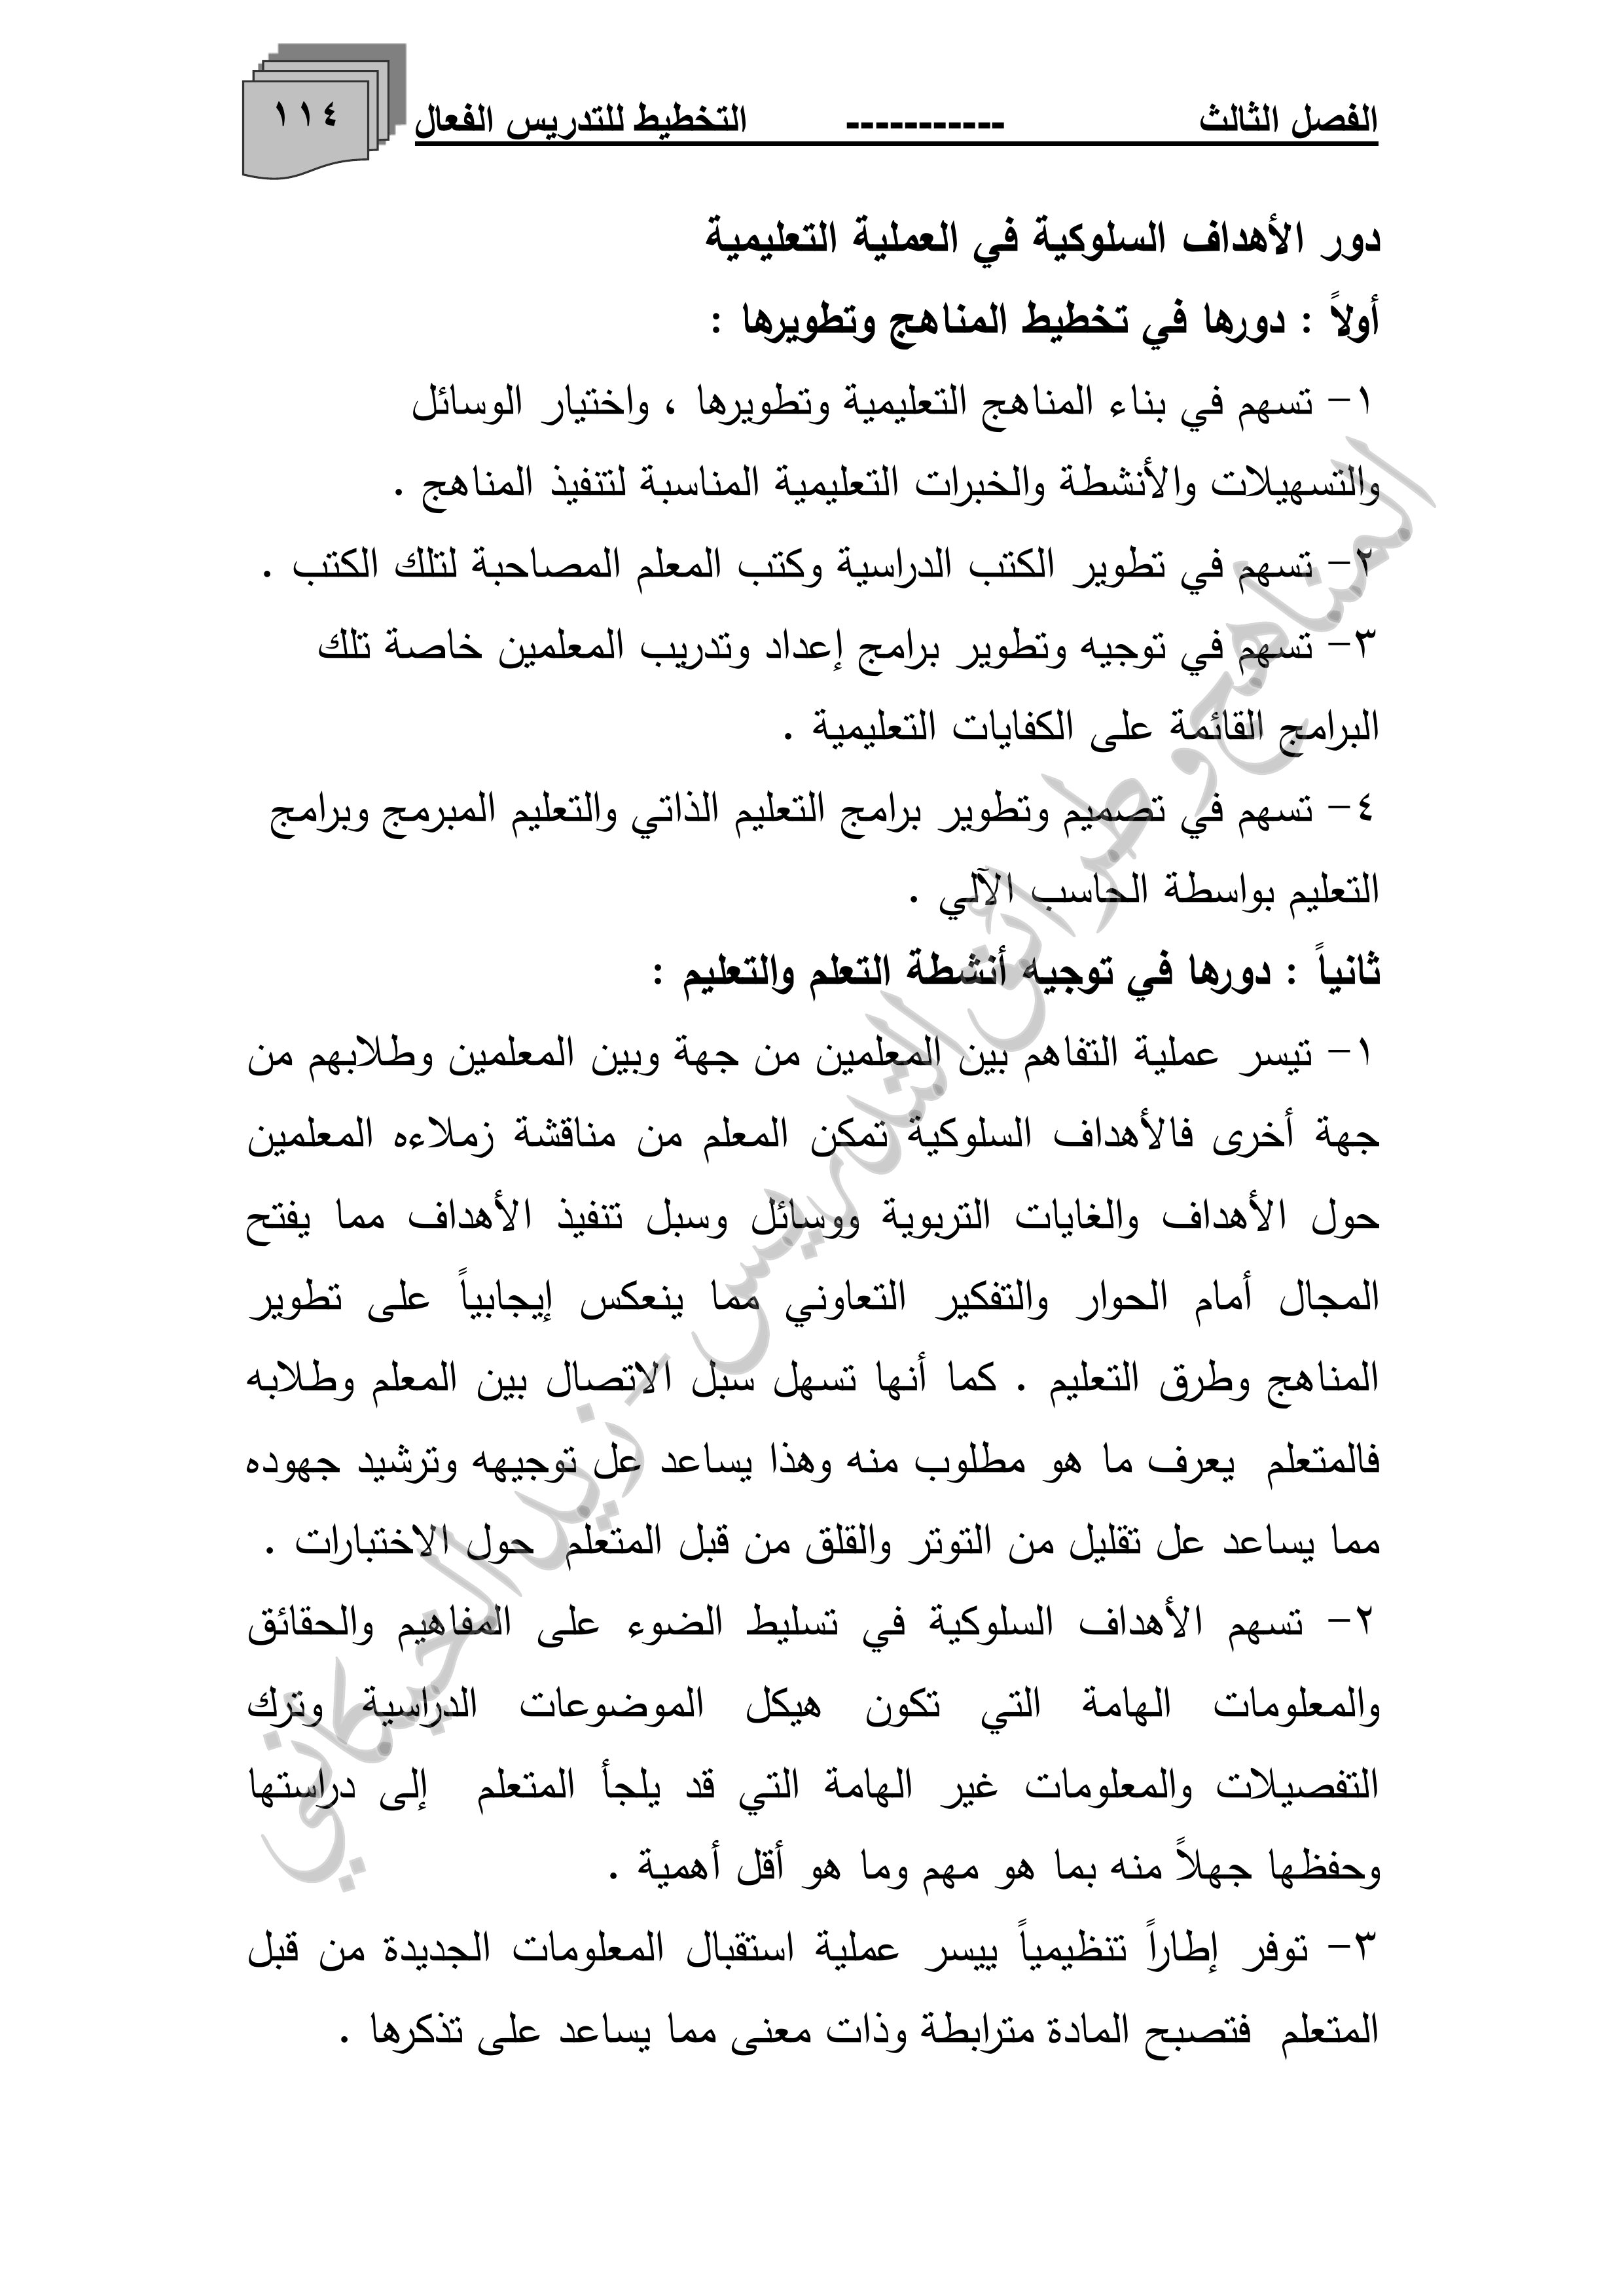 الفصل الثالث ----------- التخطيط للتدريس الفعال ١١٤
دور الأهداف السلوكية في العملية التعليمية
أولاً : دورها في تخطيط المناهج وتطويرها :
١- تسهم في بناء المناهج التعليمية وتطويرها ، واختيار الوسائل
والتسهيلات والأنشطة والخبرات التعليمية المناسبة لتنفيذ المناهج .
٢- تسهم في تطوير الكتب الدراسية وكتب المعلم المصاحبة لتلك الكتب .
٣- تسهم في توجيه وتطوير برامج إعداد وتدريب المعلمين خاصة تلك
البرامج القائمة على الكفايات التعليمية .
٤- تسهم في تصميم وتطوير برامج التعليم الذاتي والتعليم المبرمج وبرامج
التعليم بواسطة الحاسب الآلي .
ثانياً : دورها في توجيه أنشطة التعلم والتعليم :
١- تيسر عملية التفاهم بين المعلمين من جهة وبين المعلمين وطلابهم من
جهة أخرى فالأهداف السلوكية تمكن المعلم من مناقشة زملاءه المعلمين
حول الأهداف والغايات التربوية ووسائل وسبل تنفيذ الأهداف مما يفتح
المجال أمام الحوار والتفكير التعاوني مما ينعكس إيجابياً على تطوير
المناهج وطرق التعليم . كما أنها تسهل سبل الاتصال بين المعلم وطلابه
فالمتعلم يعرف ما هو مطلوب منه وهذا يساعد عل توجيهه وترشيد جهوده
مما يساعد عل تقليل من التوتر والقلق من قبل المتعلم حول الاختبارات .
٢- تسهم الأهداف السلوكية في تسليط الضوء على المفاهيم والحقائق
والمعلومات الهامة التي تكون هيكل الموضوعات الدراسية وترك
التفصيلات والمعلومات غير الهامة التي قد يلجأ المتعلم إلى دراستها
وحفظها جهلاً منه بما هو مهم وما هو أقل أهمية .
٣- توفر إطاراً تنظيمياً ييسر عملية استقبال المعلومات الجديدة من قبل
المتعلم فتصبح المادة مترابطة وذات معنى مما يساعد على تذكرها .
المناهج وطرائق التدريس - زيد الخيكاني